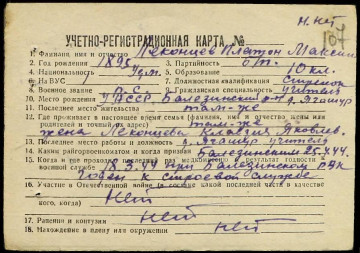 Н. нет
107
УЧЕТНО-РЕГИСТРАЦИОННАЯ КАРТА №
1. Фамилия, имя и отчество Леконцев Платон Максим
2. Год рождения 1895 3. Партийность б/п
4. Национальность Удм. 5. Образование 10 кл.
6. На ВУС 1 7. Должностная квалификация стрелок
8. Военное звание р. с. 9. Гражданская специальность учитель
10. Место рождения УАССР, Балезинский р-н д. Ягошур
11. Последнее местожительства там-же
12. Где проживает в настоящее время семья (фамилия, имя и отчество жены или
родителей и точный адрес) там-же
жена Леконцева Клавдия Яковлев.
13. Последнее место работы и должность д. Ягошур учитель
14. Каким райгорвоенкоматом и когда призван Балезинским 25.4.44.
15. Когда и где проходил последний раз медкомиссию, результат годности к
военной службе 18.3.44 при Балезинском РВК
годен к строевой службе
16. Участие в Отечественной войне (в составе какой последней части в качестве
кого, когда) Нет
17. Ранения и контузии нет
18. Нахождение в плену или окружении нет